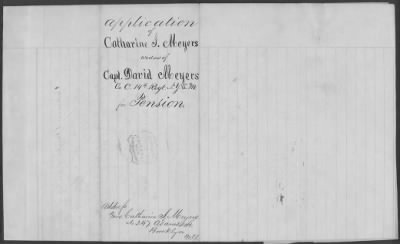 Application
of
Catharine S. Meyers
widow of
Capt. David Meyers
Co C. 14th Regt N.Y.S.M.
for Pension.
Address
Mrs Catharine S. Meyers
No 247 Adams St
Brooklyn